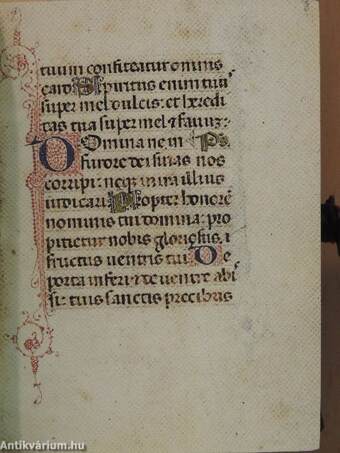 tuum confiteatur omnis
caro Spiritus enim tuu
super mel dulcis: et heredi
tas tua super mel & fauu:
Domina ne in Ps
furore dei sinas nos
corripi: neq in ira illius
iudicari Propter honorē
nominis tui domina: pro
pitietur nobis gloriosus
fructus uentris tui De
porta inferi & de uentre abi
si: tuis sanctis precibus
Antikvárium.hu